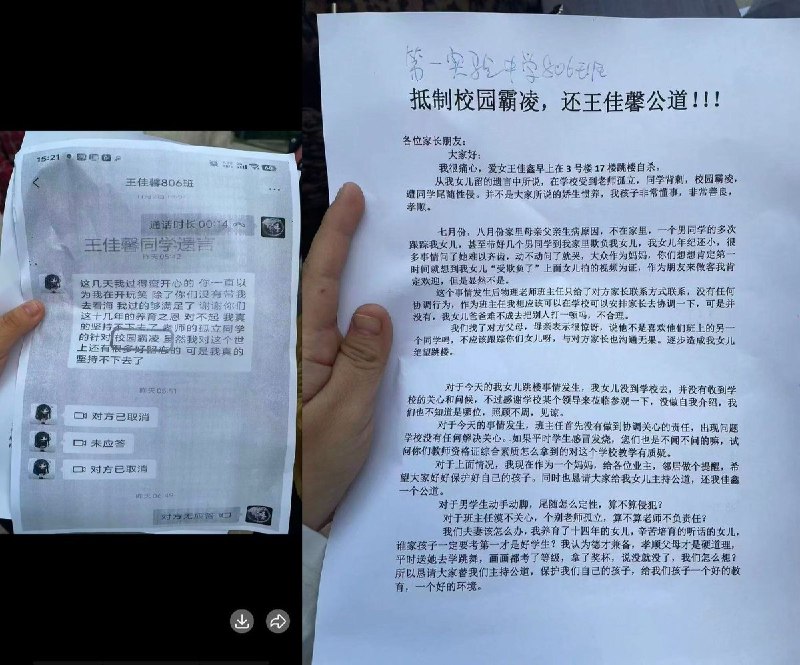 15:21
王佳馨806班
通话时长 00:14
王佳馨同学遗言
昨天 05:42
这几天我过得蛮开心的 你一直以
为我在开玩笑 除了你们没有带我
去看海 我过的够满足了 谢谢你们
这十几年的养育之恩 对不起 我真
的坚持不下去了 老师的孤立同学
的针对 校园霸凌 虽然我对这个世
上还有很多好留恋的 可是我真的
坚持不下去了
昨天 06:51
对方已取消
未应答
对方已取消
昨天 06:49
对方无应答
第一实验中学806班
抵制校园霸凌，还王佳馨公道！！！
各位家长朋友：
大家好：
我很痛心，爱女王佳鑫早上在 3 号楼 17 楼跳楼自杀，
从我女儿留的遗言中所说，在学校受到老师孤立，同学背刺，校园霸凌，
遭同学尾随性侵。并不是大家所说的娇生惯养，我孩子非常懂事，非常善良，
孝顺。
七月份，八月份家里母亲父亲生病原因，不在家里，一个男同学的多次
跟踪我女儿，甚至带好几个男同学到我家里欺负我女儿，我女儿年纪还小，很
多事情问了她难以齐齿，动不动问了就哭，大众作为妈妈，你们想想肯定第一
时间就想到我女儿“受欺负了”上面女儿拍的视频为证，作为朋友来做客我肯
定欢迎，但是显然不是。
这个事情发生后物理老师班主任只给了对方家长联系方式联系，没有任何
协调行为，作为班主任我想应该可以在学校可以安排家长去协调一下，可是并
没有，我女儿爸爸难不成去把别人打一顿吗，不合理。
我们找了对方父母，母亲表示很惊讶，说他不是喜欢他们班上的另一
个同学吗，不应该跟踪你们女儿呀，与对方家长也沟通无果。逐步造成我女儿
绝望跳楼。
对于今天的我女儿跳楼事情发生，我女儿没到学校去，并没有收到学
校的关心和问候，不过感谢学校某个领导来莅临参观一下，没做自我介绍，我
们也不知道是哪位，照顾不周，见谅。
对于今天的事情发生，班主任首先没有做到协调关心的责任，出现问题
学校没有任何解决关心。如果平时学生感冒发烧，您们也是不闻不问的嘛，试
问你们教师资格证综合素质怎么拿到的对这个学校教学有质疑。
对于上面情况，我现在作为一个妈妈，给各位业主，邻居做个提醒，希
望大家好好保护好自己的孩子，同时也恳请大家给我女儿主持公道，还我佳鑫
一个公道。
对于男学生动手动脚，尾随怎么定性，算不算侵犯？
对于班主任漠不关心，个别老师孤立，算不算老师不负责任？
我们夫妻该怎么办，我养育了十四年的女儿，辛苦培育的听话的女儿，
谁家孩子一定要考第一才是好学生？我认为德才兼备，孝顺父母才是硬道理，
平时送她去学跳舞，画画都考了等级，拿了奖杯，说没就没了，我们怎么想？
所以恳请大家替我们主持公道，保护我们自己的孩子，给我们孩子一个好的教
育，一个好的环境。